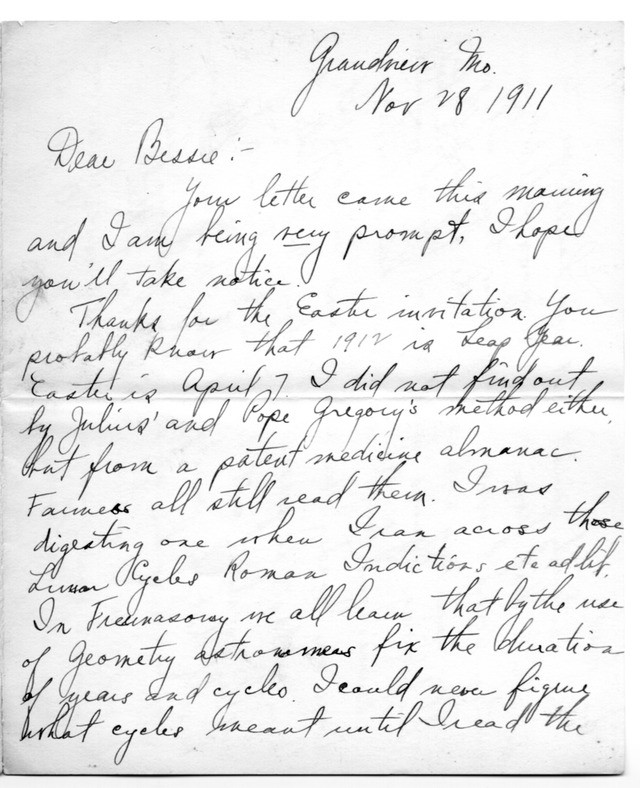 Grandview Mo.
Nov 28 1911
Dear Bessie:-
Your letter came this morning
and I am being very prompt, I hope
you'll take notice.
Thanks for the Easter invitation. You
probably know that 1912 is Leap Year.
Easter is April 7. I did not find out
by Julius' and Pope Gregory's method either,
but from a patent medicine almanac.
Farmers all still read them. I was
digesting one when I ran across those
Lunar Cycles Roman Indictions etc ad lib.
In Freemasonry we all learn that by the use
of Geometry astronomers fix the duration
of years and cycles. I could never figure
what cycles meant until I read the